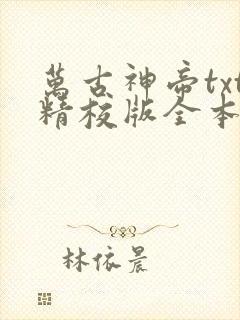 萬古神帝txt
精校版全本
林依晨